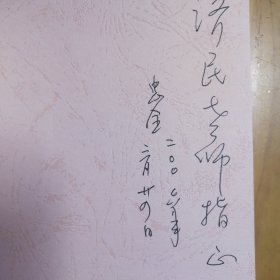 济民老师指正
忠全
二〇〇六年
六月廿四日